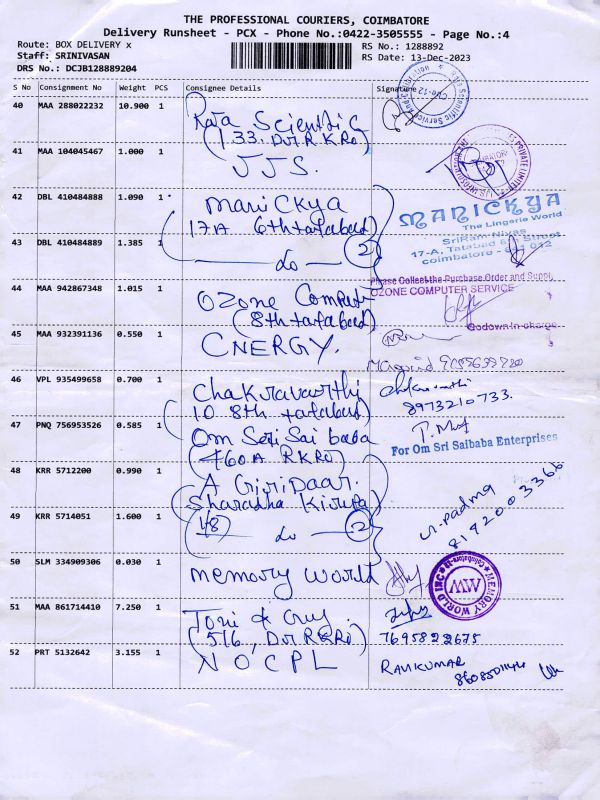 THE PROFESSIONAL COURIERS, COIMBATORE
Delivery Runsheet - PCX - Phone No.:0422-3505555 - Page No.:4
Route: BOX DELIVERY x
RS No.: 1288892
Staff: SRINIVASAN
RS Date: 13-Dec-2023
DRS No.: DCJB128889204
S No Consignment No Weight PCS Consignee Details Signature
40 MAA 288022232 10.900 1
Rara Scientific
(133. Dvr R.K Ro)
41 MAA 104045467 1.000 1
JJS.
42 DBL 410484888 1.090 1
Manickya
17A 6th tatabad
MANICKYA
The Lingerie World
SriRam Nivas
17-A, Tatabad 6th Street
coimbatore - 641 012
43 DBL 410484889 1.385 1
do (2)
44 MAA 942867348 1.015 1
Ozone Comput
(8th tatabad)
Please Collect the Purchase Order and Suppl.
OZONE COMPUTER SERVICE
Godown In-charge
45 MAA 932391136 0.550 1
CNERGY.
46 VPL 935499658 0.700 1
Chakravarthi
10 8th tatabad)
8973210733.
47 PNQ 756953526 0.585 1
Om Seri Sai baba
(460A RKRo)
For Om Sri Saibaba Enterprises
48 KRR 5712200 0.990 1
A Giridaar.
Sharadha Kirupa
49 KRR 5714051 1.600 1
(48) do (2)
M. Padma
8192003366
50 SLM 334909306 0.030 1
Memory World
MEMORY WORLD INC
MW
51 MAA 861714410 7.250 1
Toni & Guy
(516, Dvr RKRo)
7695822675
52 PRT 5132642 3.155 1
NOCPL
RAVIKUMAR